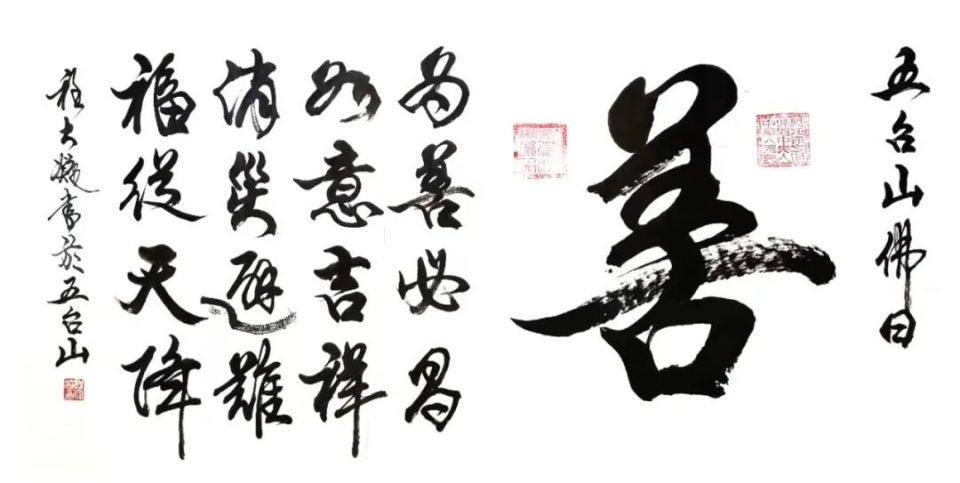 五台山佛曰
善
為善必昌
如意吉祥
消災避難
福從天降
大書於五台山